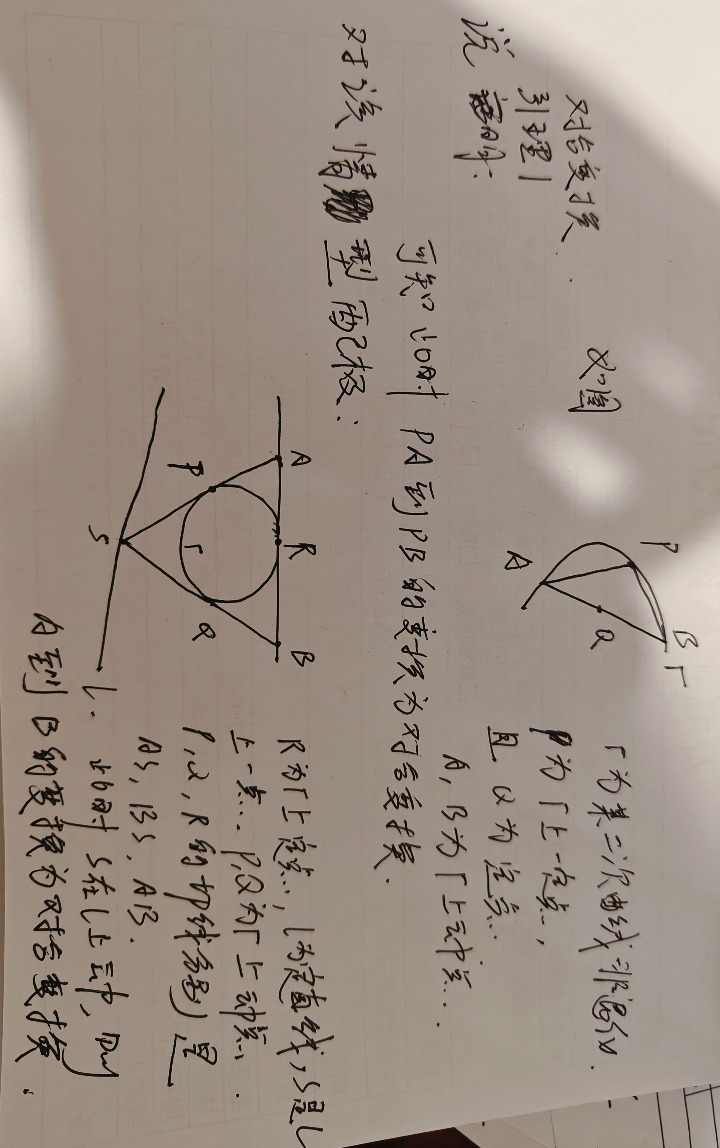 对合变换.
引理1
说明:
如图
P
A
Q
B
Γ
Γ为某二次曲线非退化.
P为Γ上一定点,
且Q为定点.
A,B为Γ上动点.
可知此时 PA到PB的变换为对合变换.
对该情型配极:
A
P
R
S
Γ
Q
B
L.
R为Γ上定点, l为定直线, S是l
上一点. P,Q为Γ上动点.
P,Q,R的切线分别是
AS, BS, AB.
此时S在l上动, 则
A到B的变换为对合变换.